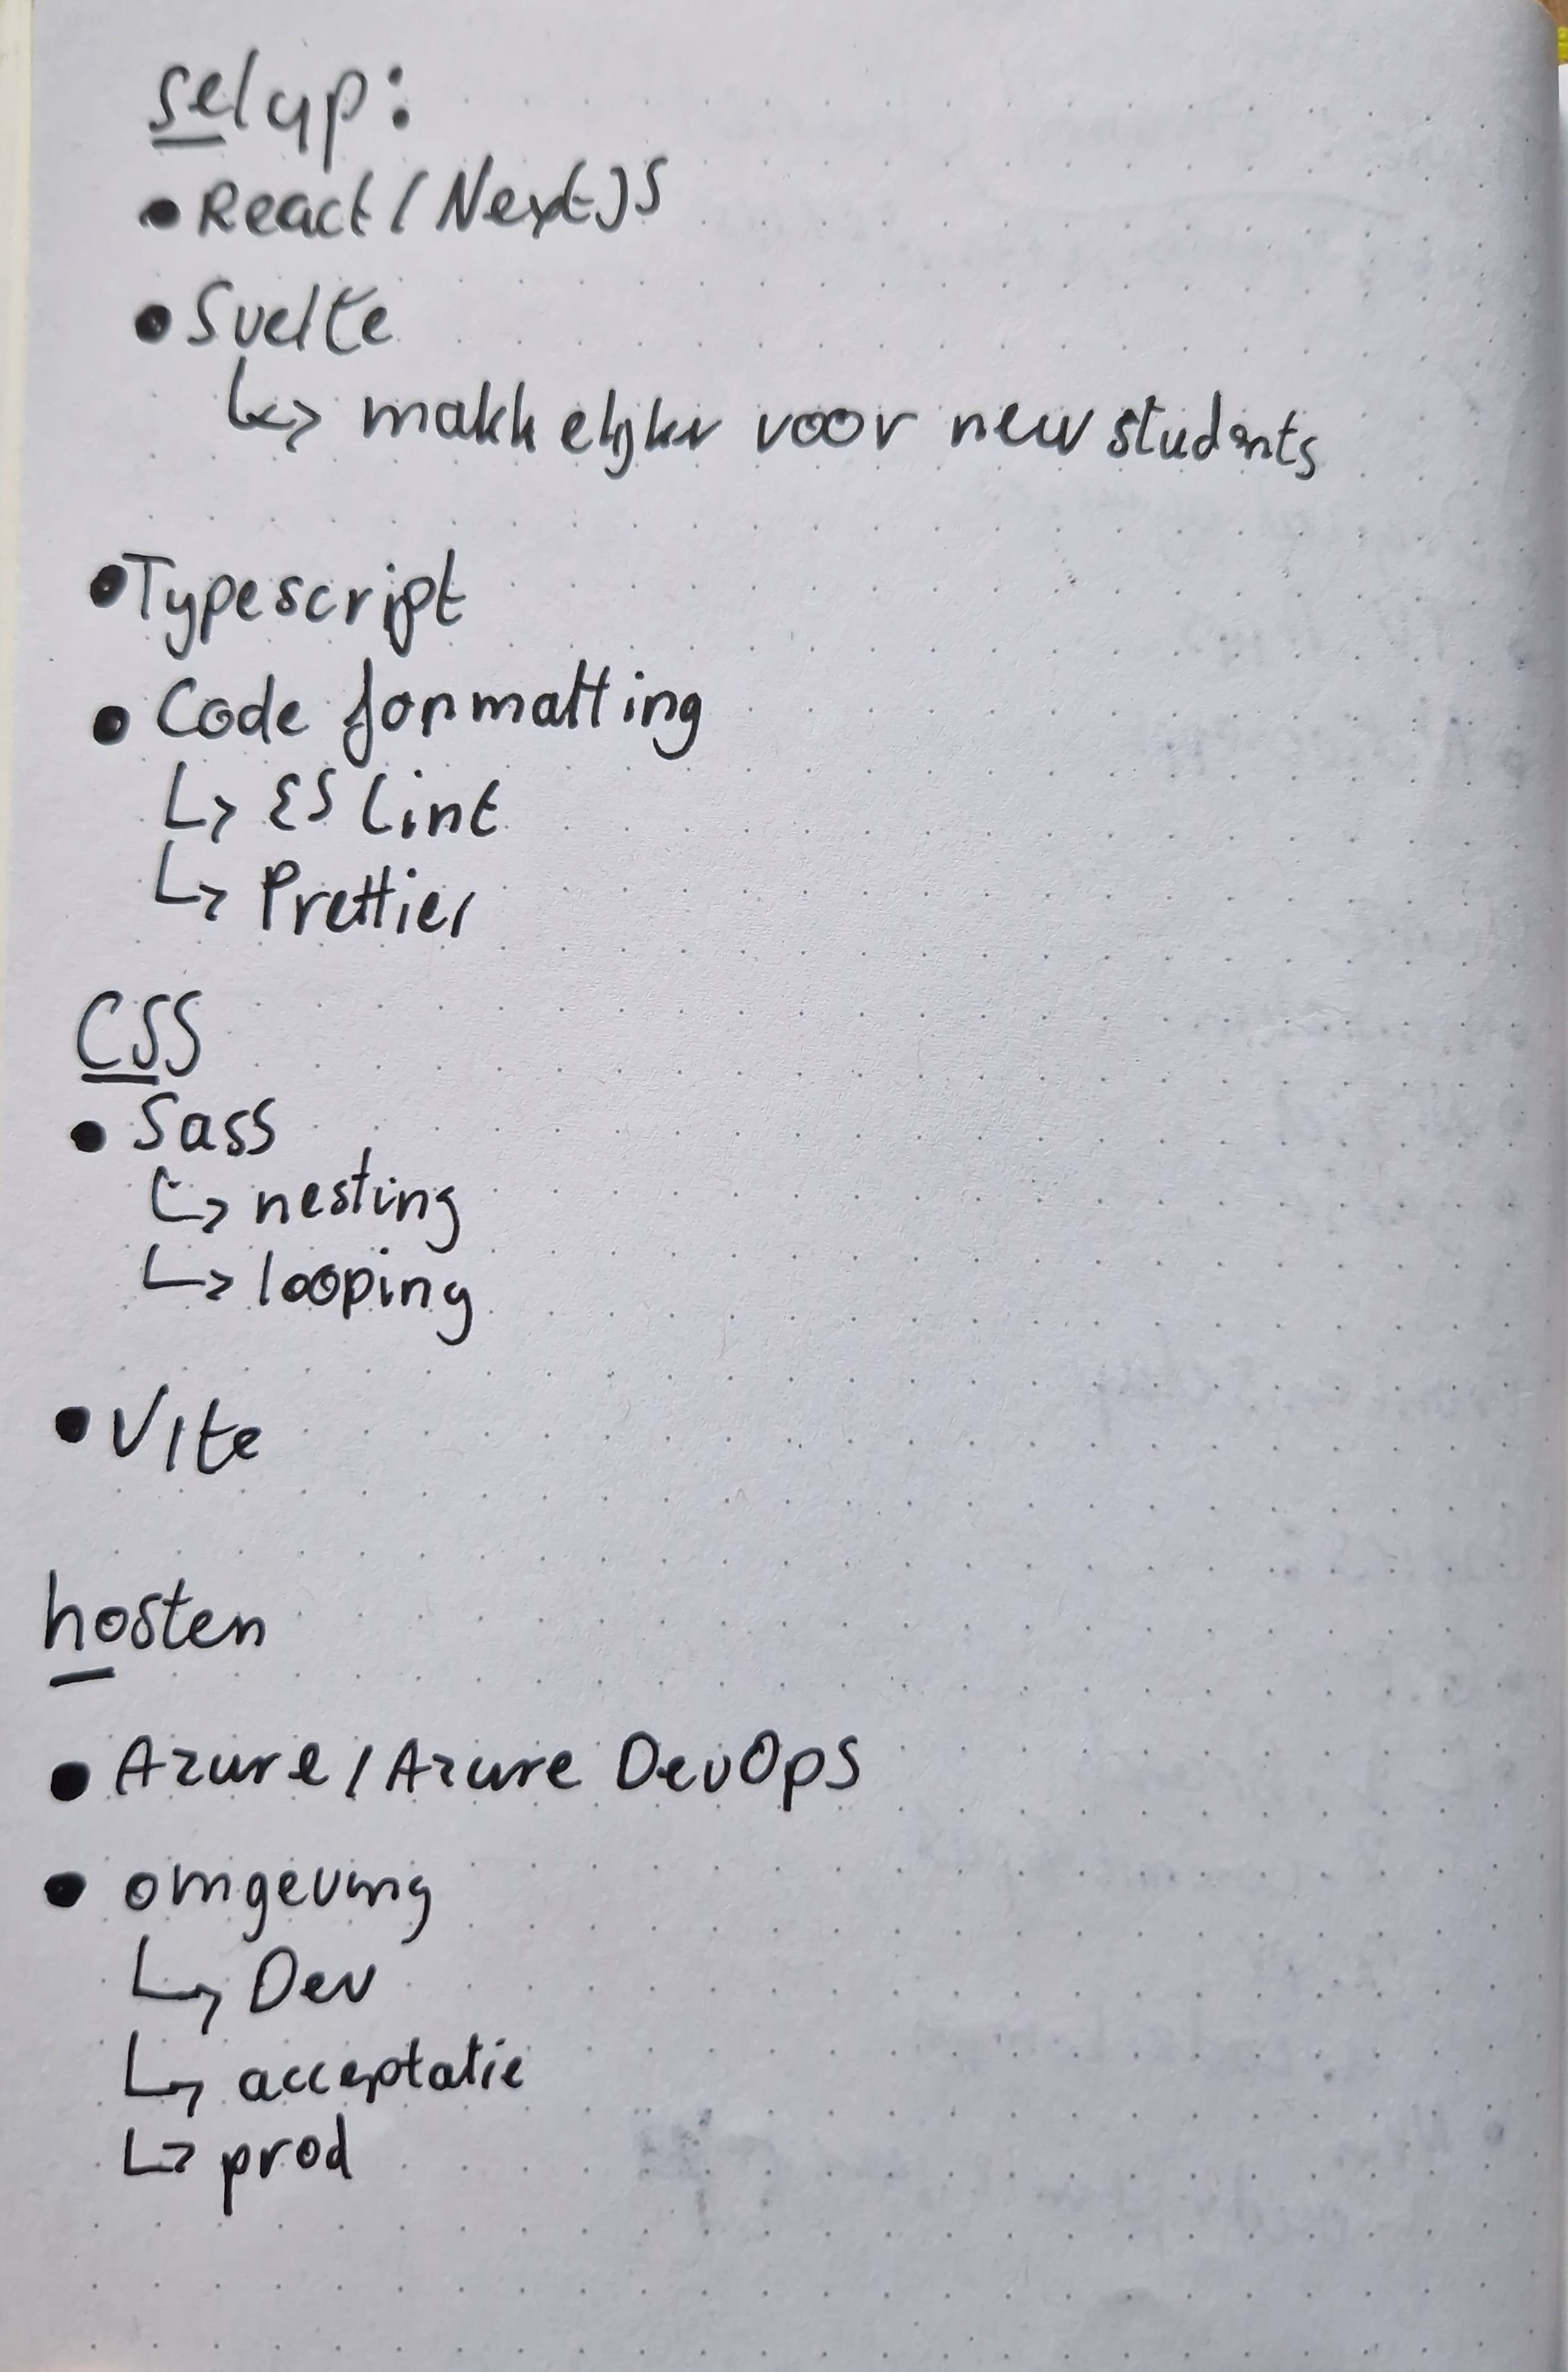 setup:
• React / NextJS
• Svelte
↳> makkelijker voor new students
• Typescript
• Code formatting
↳ ESlint
↳ Prettier
CSS
• Sass
↳ nesting
↳ looping
• Vite
hosten
• Azure / Azure DevOps
• omgeving
↳ Dev
↳ acceptatie
↳ prod